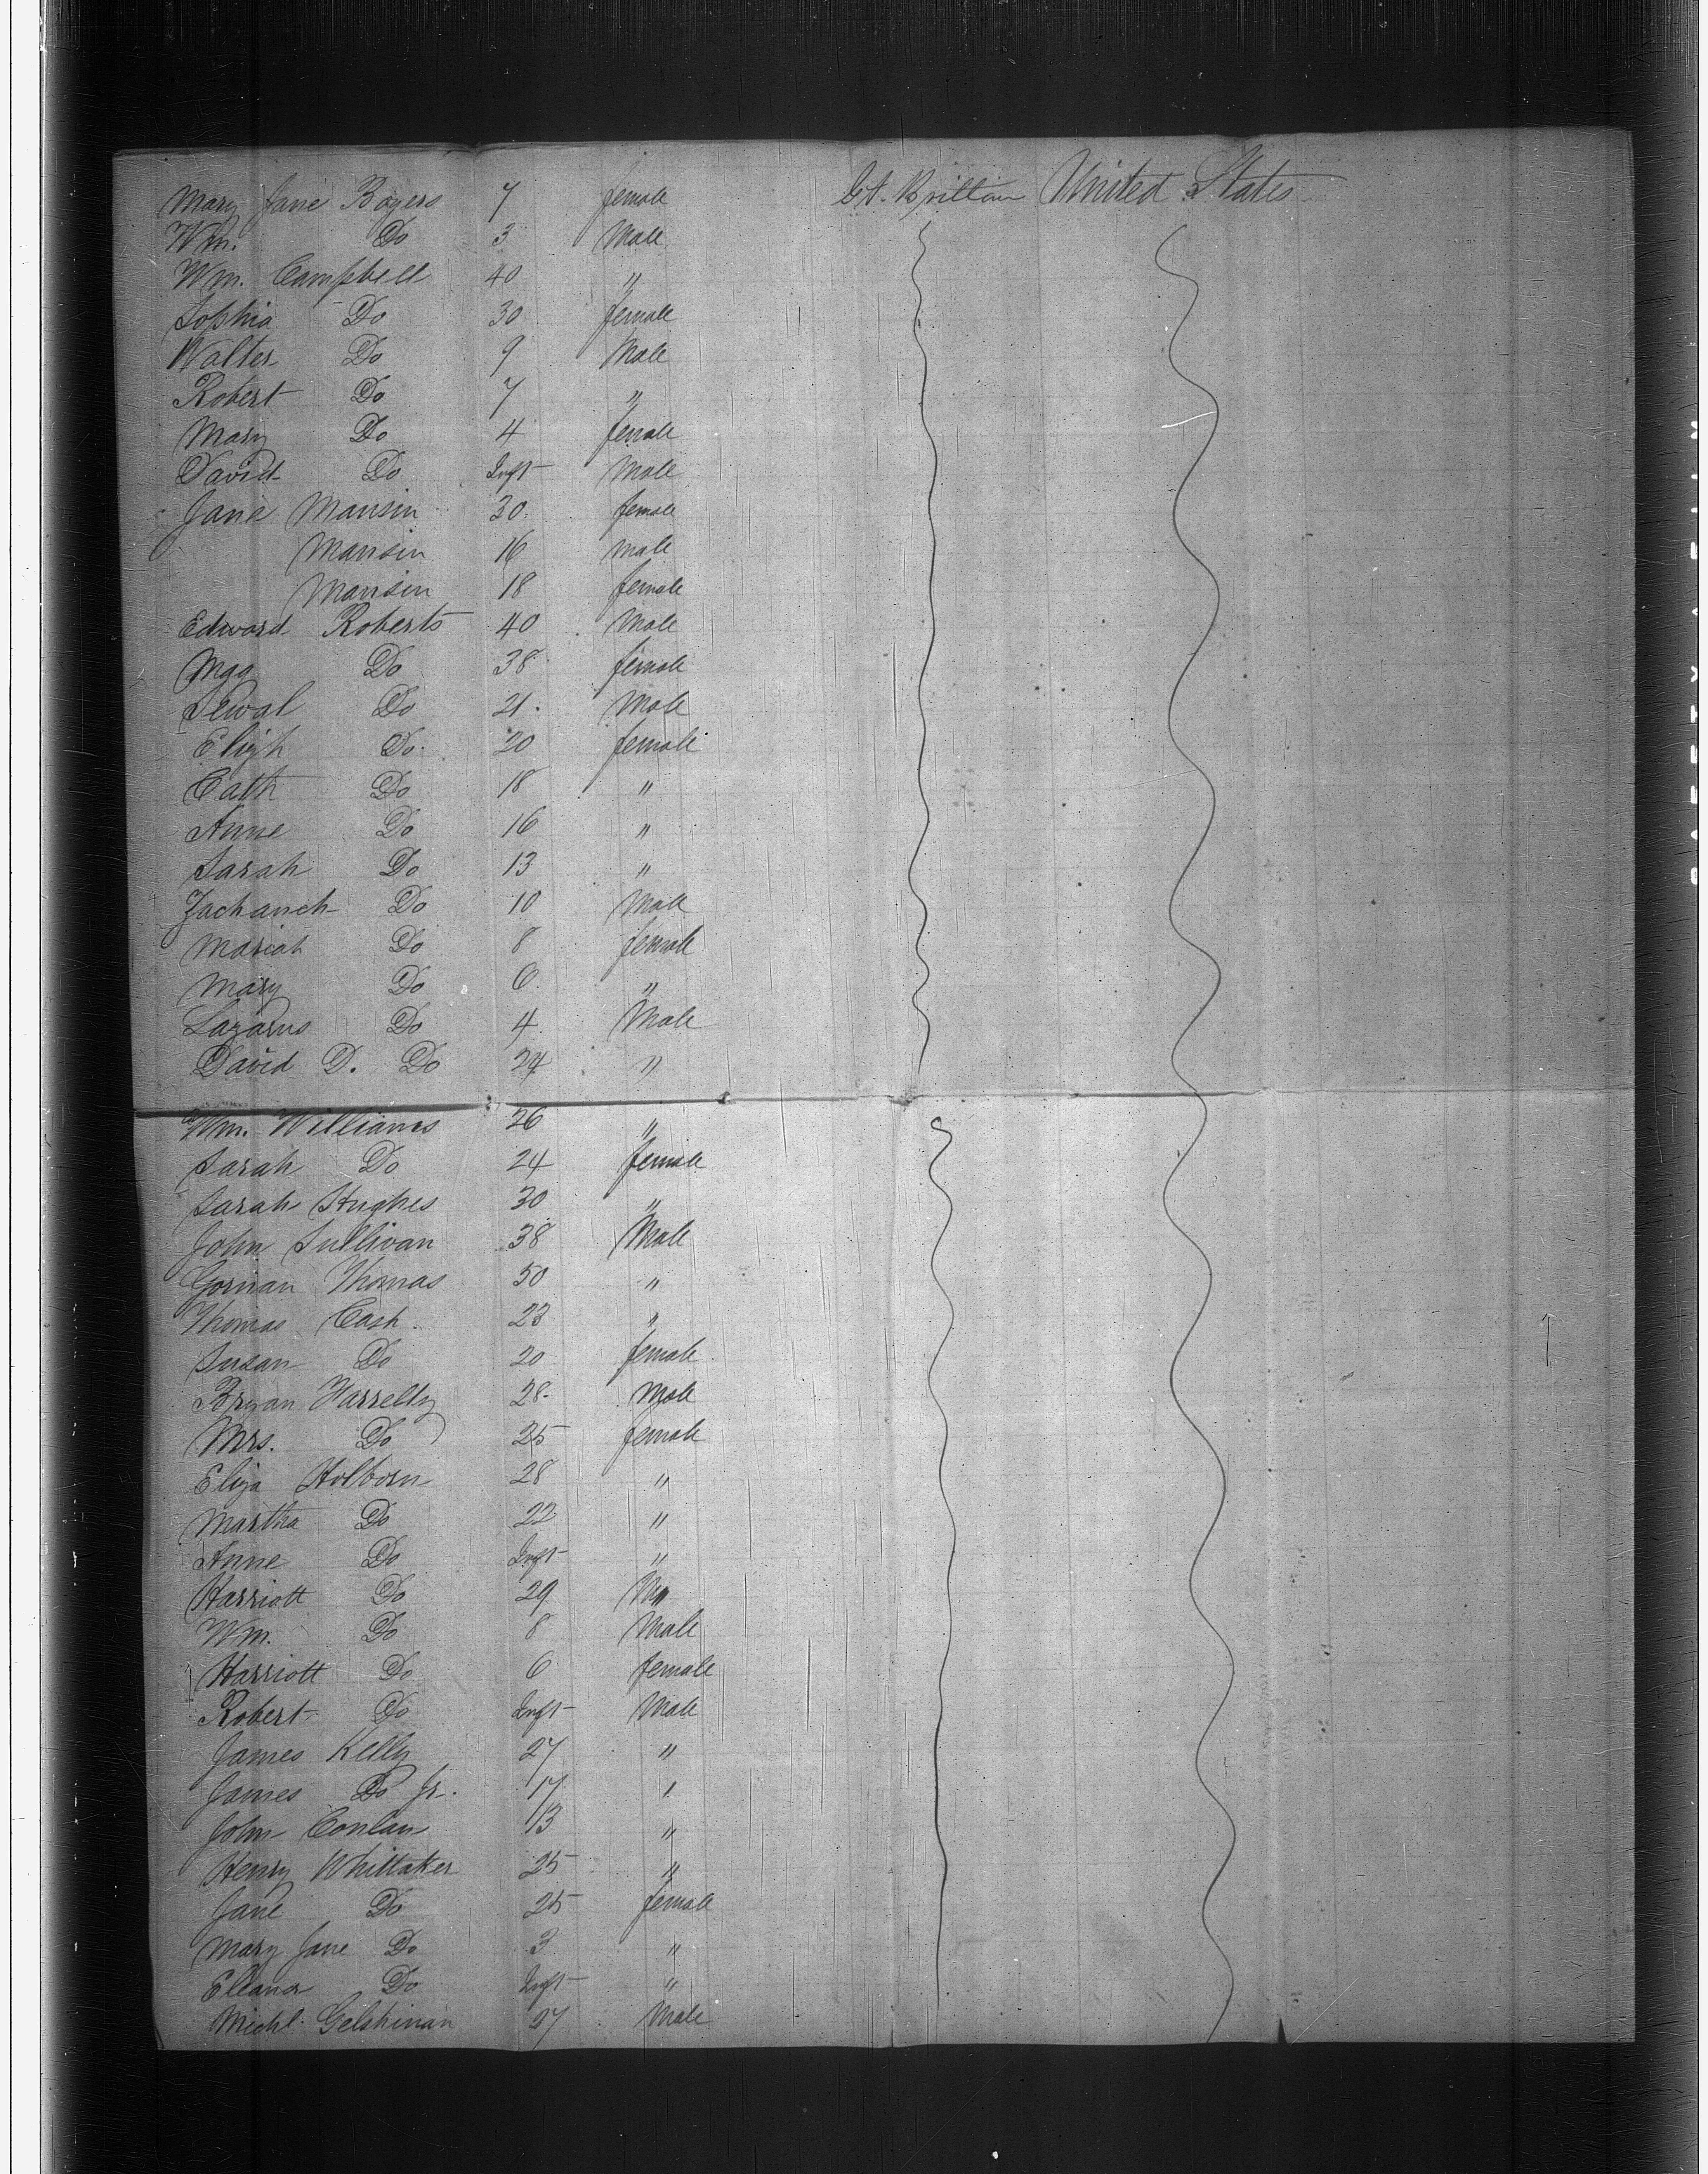 Mary Jane Bogers 7 female Gt. Brittain United States
Wm. Do 3 Male
Wm. Campbell 40 "
Sophia Do 30 female
Walter Do 9 Male
Robert Do 7 "
Mary Do 4 female
David Do Inft Male
Jane Mansin 30 female
Mansin 16 male
Mansin 18 female
Edward Roberts 40 Male
Mgg Do 38 female
Sewal Do 21 Male
Elizh Do 20 female
Cath Do 18 "
Anne Do 16 "
Sarah Do 13 "
Zachanch Do 10 Male
Mariah Do 8 female
Mary Do 6 "
Lazarus Do 4 Male
David D. Do 24 "
Wm. Williams 26 "
Sarah Do 24 female
Sarah Hughes 30 "
John Sullivan 38 Male
Gorman Thomas 50 "
Thomas Cash. 23 "
Susan Do 20 female
Bryan Harrelly 28 Male
Mrs. Do 25 female
Eliza Holborn 28 "
Martha Do 22 "
Anne Do Inft "
Harriott Do 29 "
Wm. Do 8 Male
Harriott Do 6 female
Robert Do Inft Male
James Kelly 27 "
James Do Jr. 17 "
John Conlan 13 "
Henry Whittaker 25 "
Jane Do 25 female
Mary Jane Do 3 "
Ellanor Do Inft "
Michl. Gelshinan 27 Male